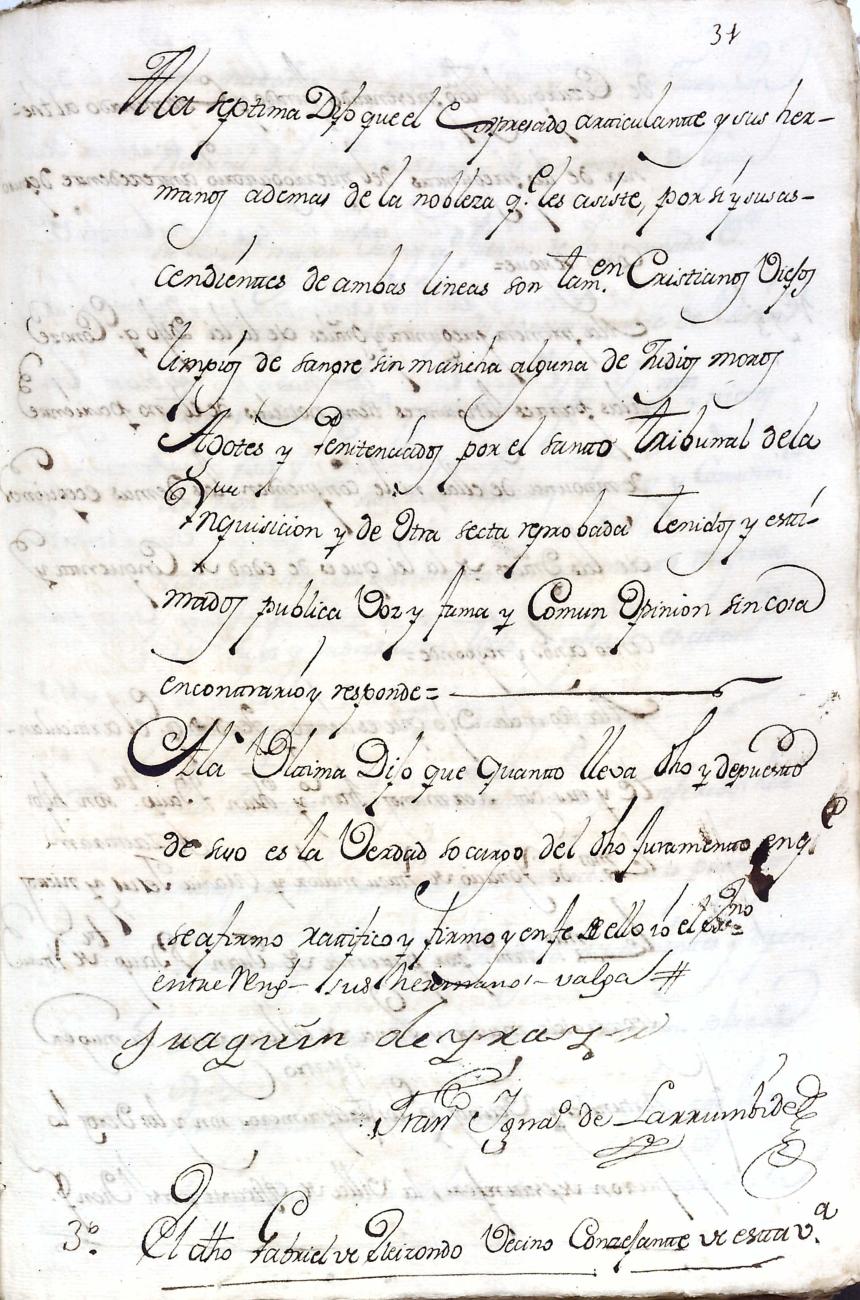 31
A la septima Dijo que el Expresado articulante y sus her-
manos ademas de la nobleza q.e les asiste, por sí y sus as-
cendientes de ambas lineas son tam.en Cristianos Viejos
limpios de sangre sin mancha alguna de Judios moros
Agotes y Penitenciados por el santto Tribunal de la
Inquisicion y de Otra secta reprobada tenidos y esti-
mados publica Voz y fama y Comun Opinion sin cosa
encontrario y responde=
A la Ultima Dijo que quantto lleva dho y depuestto
de suso es la Verdad so cargo del dho Juramentto en q.e
se afirmo rattifico y firmo y en fe de ello io el Esc.no =
entre Reng.s - sus hermanos - valga
Juaquin de yraz
Fran.co Igna.o de Larrumbide
3.o El dho Gabriel de Eleizondo Vecino Conzejantte de estta v.a